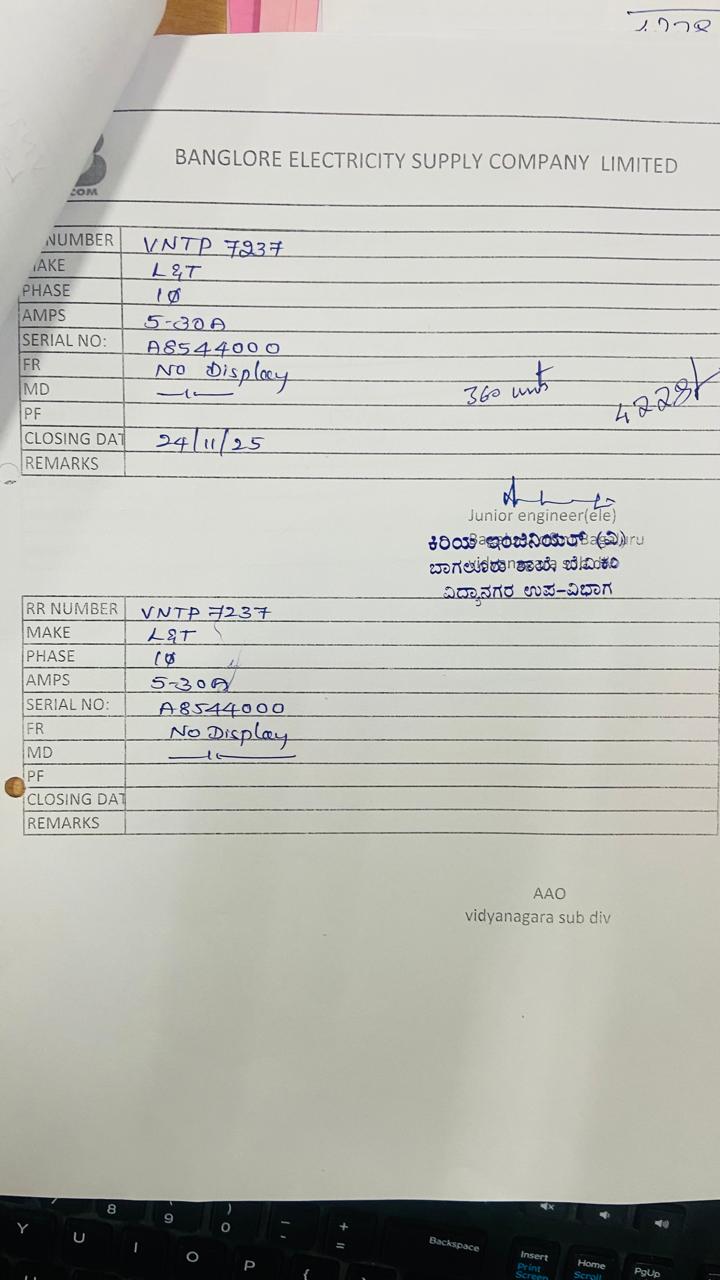 BANGLORE ELECTRICITY SUPPLY COMPANY LIMITED
COM
NUMBER VNTP 7237
MAKE L&T
PHASE 1Ø
AMPS 5-30A
SERIAL NO: A8544000
FR No Display
MD —〃—
360 units
4228/
PF
CLOSING DAT 24/11/25
REMARKS
Junior engineer(ele)
ಕಿರಿಯ ಇಂಜಿನಿಯರ್ (ವಿ)
ಬಾಗಲೂರು ಶಾಖೆ, ಬೆ.ವಿ.ಕಂ
ವಿದ್ಯಾನಗರ ಉಪ-ವಿಭಾಗ
RR NUMBER VNTP 7237
MAKE L&T
PHASE 1Ø
AMPS 5-30A
SERIAL NO: A8544000
FR No Display
MD —〃—
PF
CLOSING DAT
REMARKS
AAO
vidyanagara sub div
Y U I O P
8 9 0
Backspace
Insert
Print
Screen
Home
Scroll
PgUp